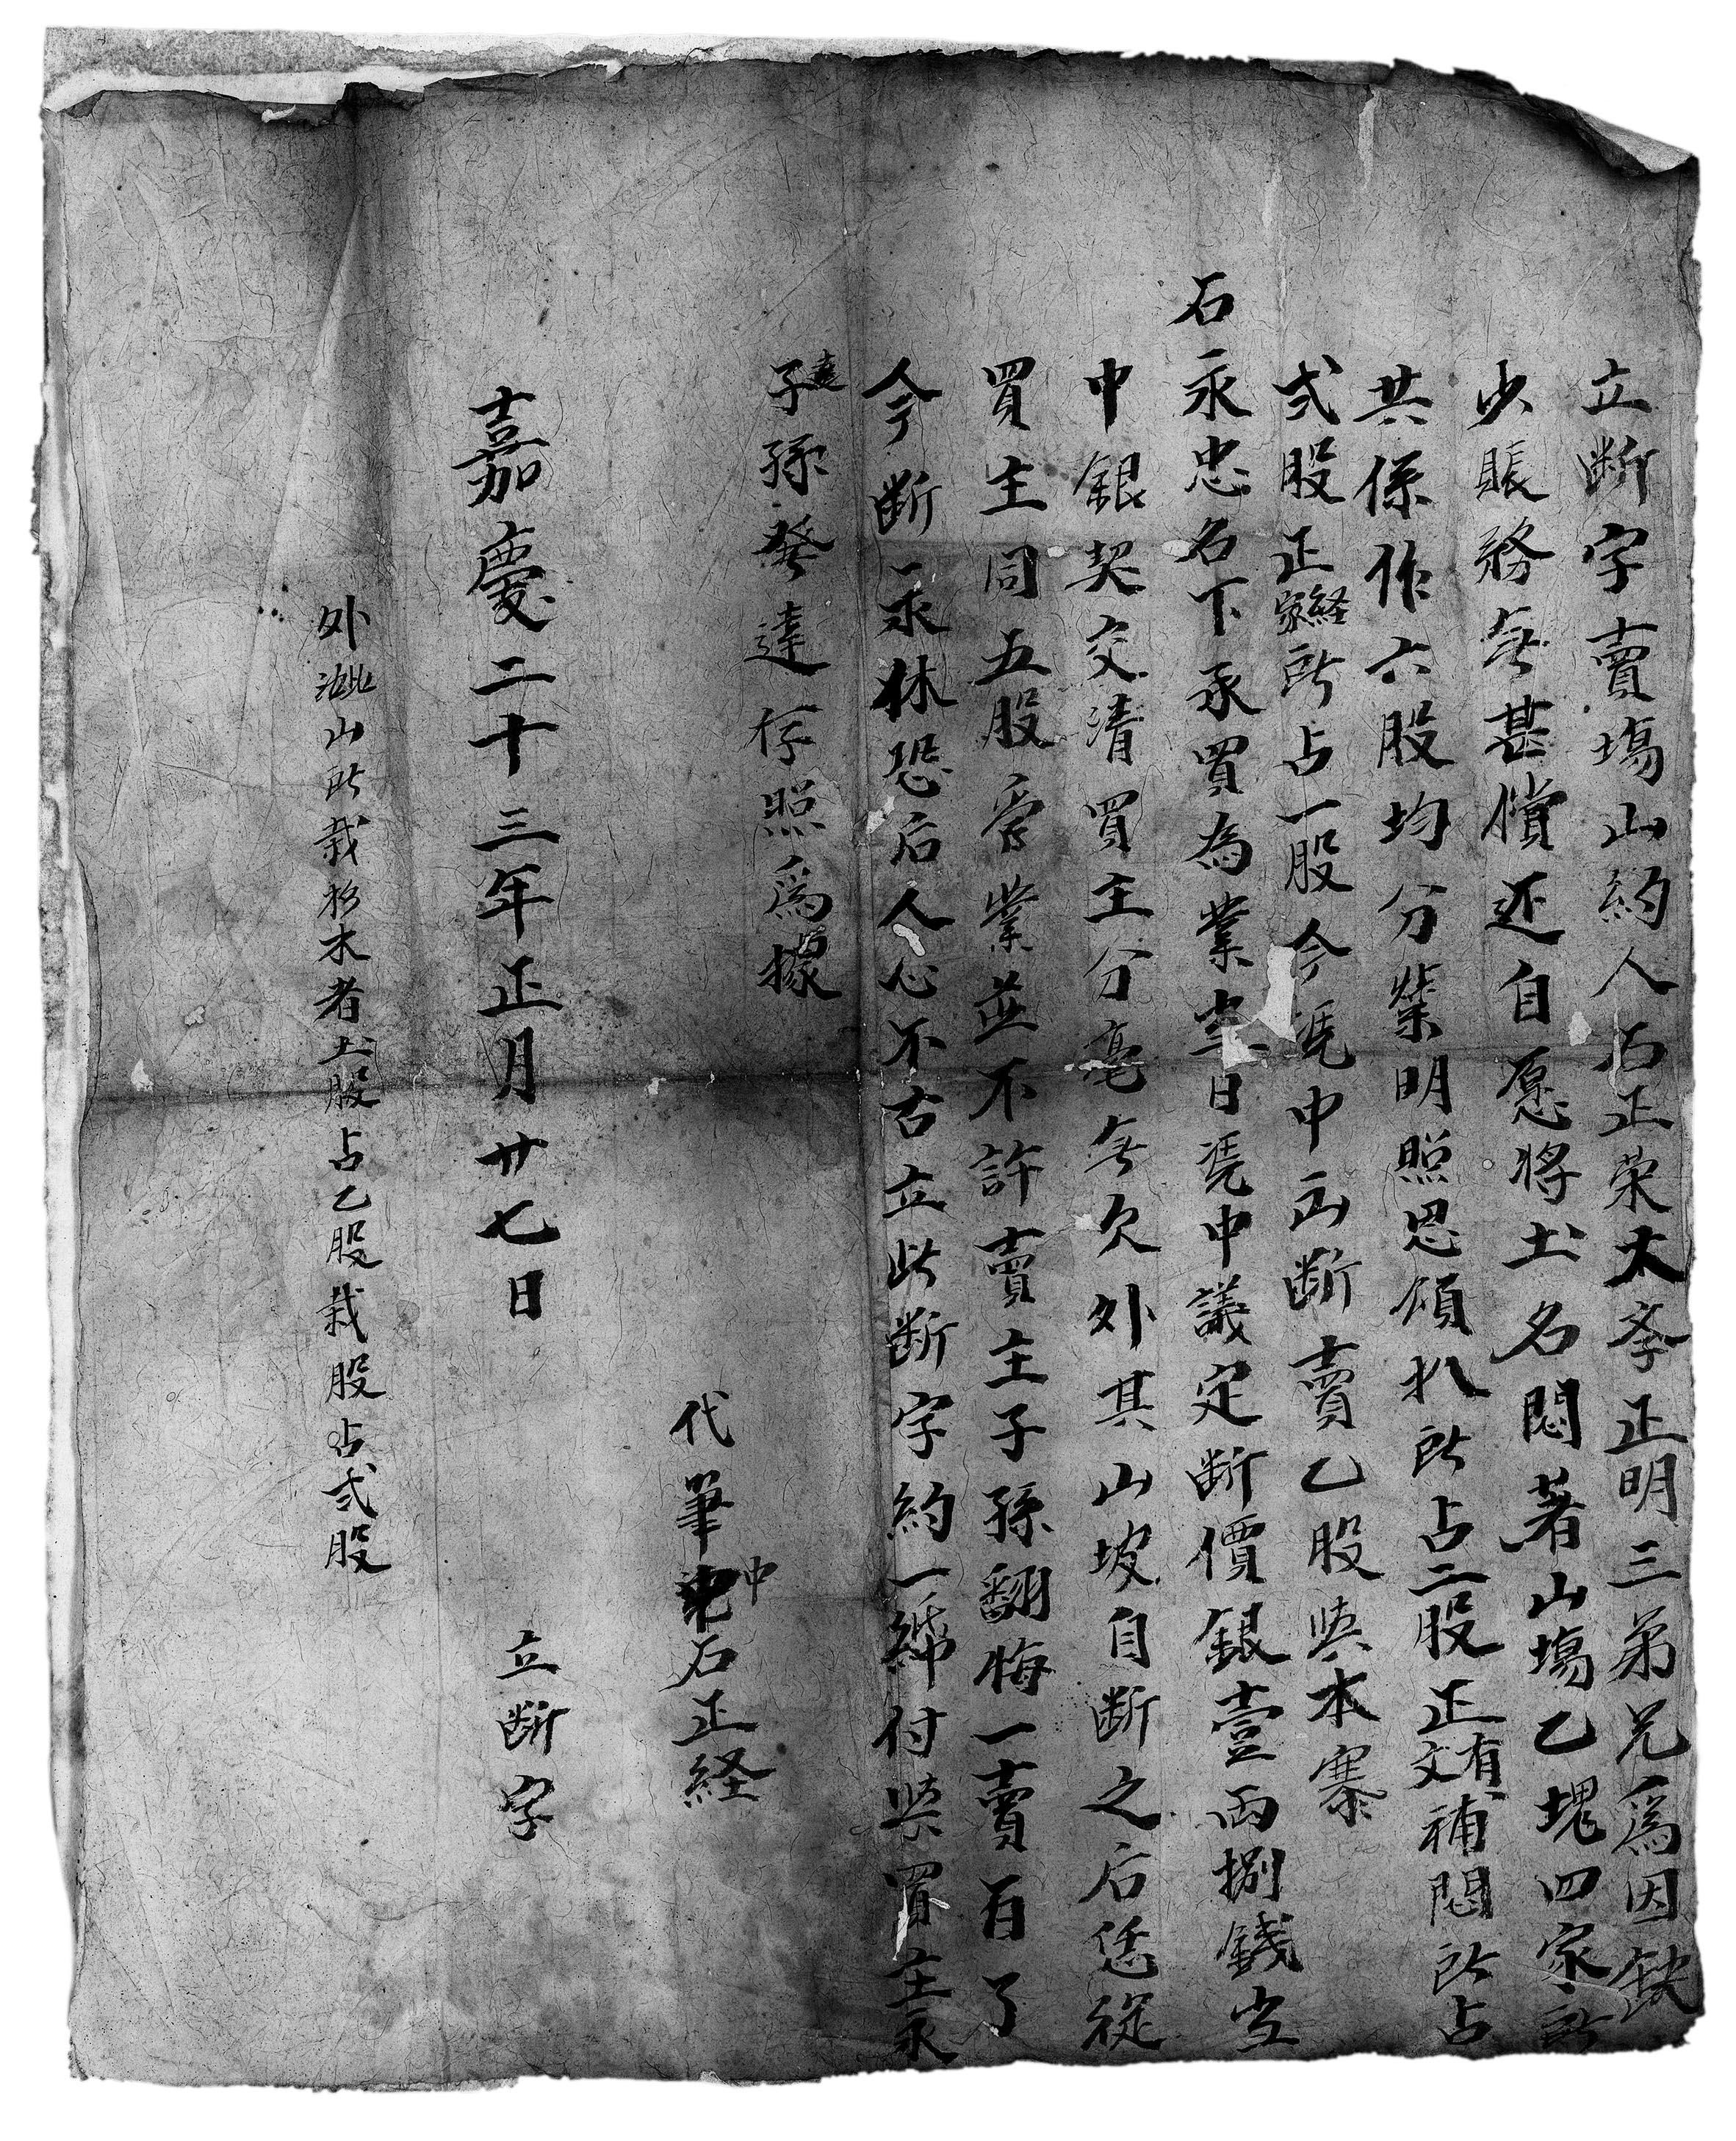 立断字賣塲山約人石正荣太孝正明三弟兄爲因缺
少賬務無甚償还自愿將土名悶著山塲乙塊四家所
共係作六股均分業明照恩領扒所占二股正有文補悶所占
弍股正経家所占一股今凴中出断賣乙股與本寨
石永忠名下承買為業当日凴中議定断價銀壹両捌錢当
中銀契交清買主分毫無欠外其山坡自断之后恁從
買主同五股管業並不許賣主子孫翻悔一賣百了
今断一永休恐后人心不古立此断字約一紙付與買主永
遠子孫發達存照爲據
代筆中石正経
嘉慶二十三年正月廿七日 立断字
外批山所栽杉木者土股占乙股栽股占弍股